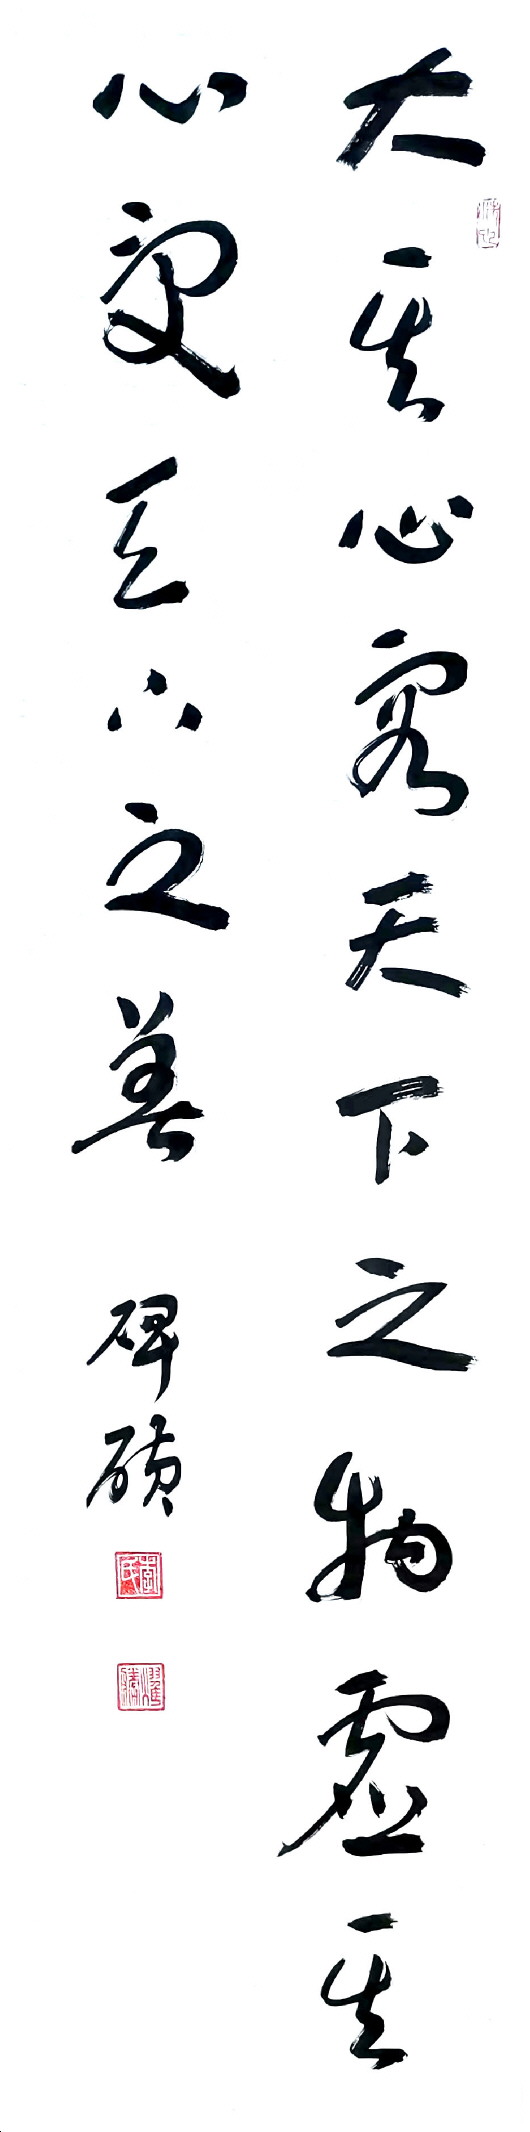 大其心容天下之物虛其
心受天下之善
碑碩
李氏